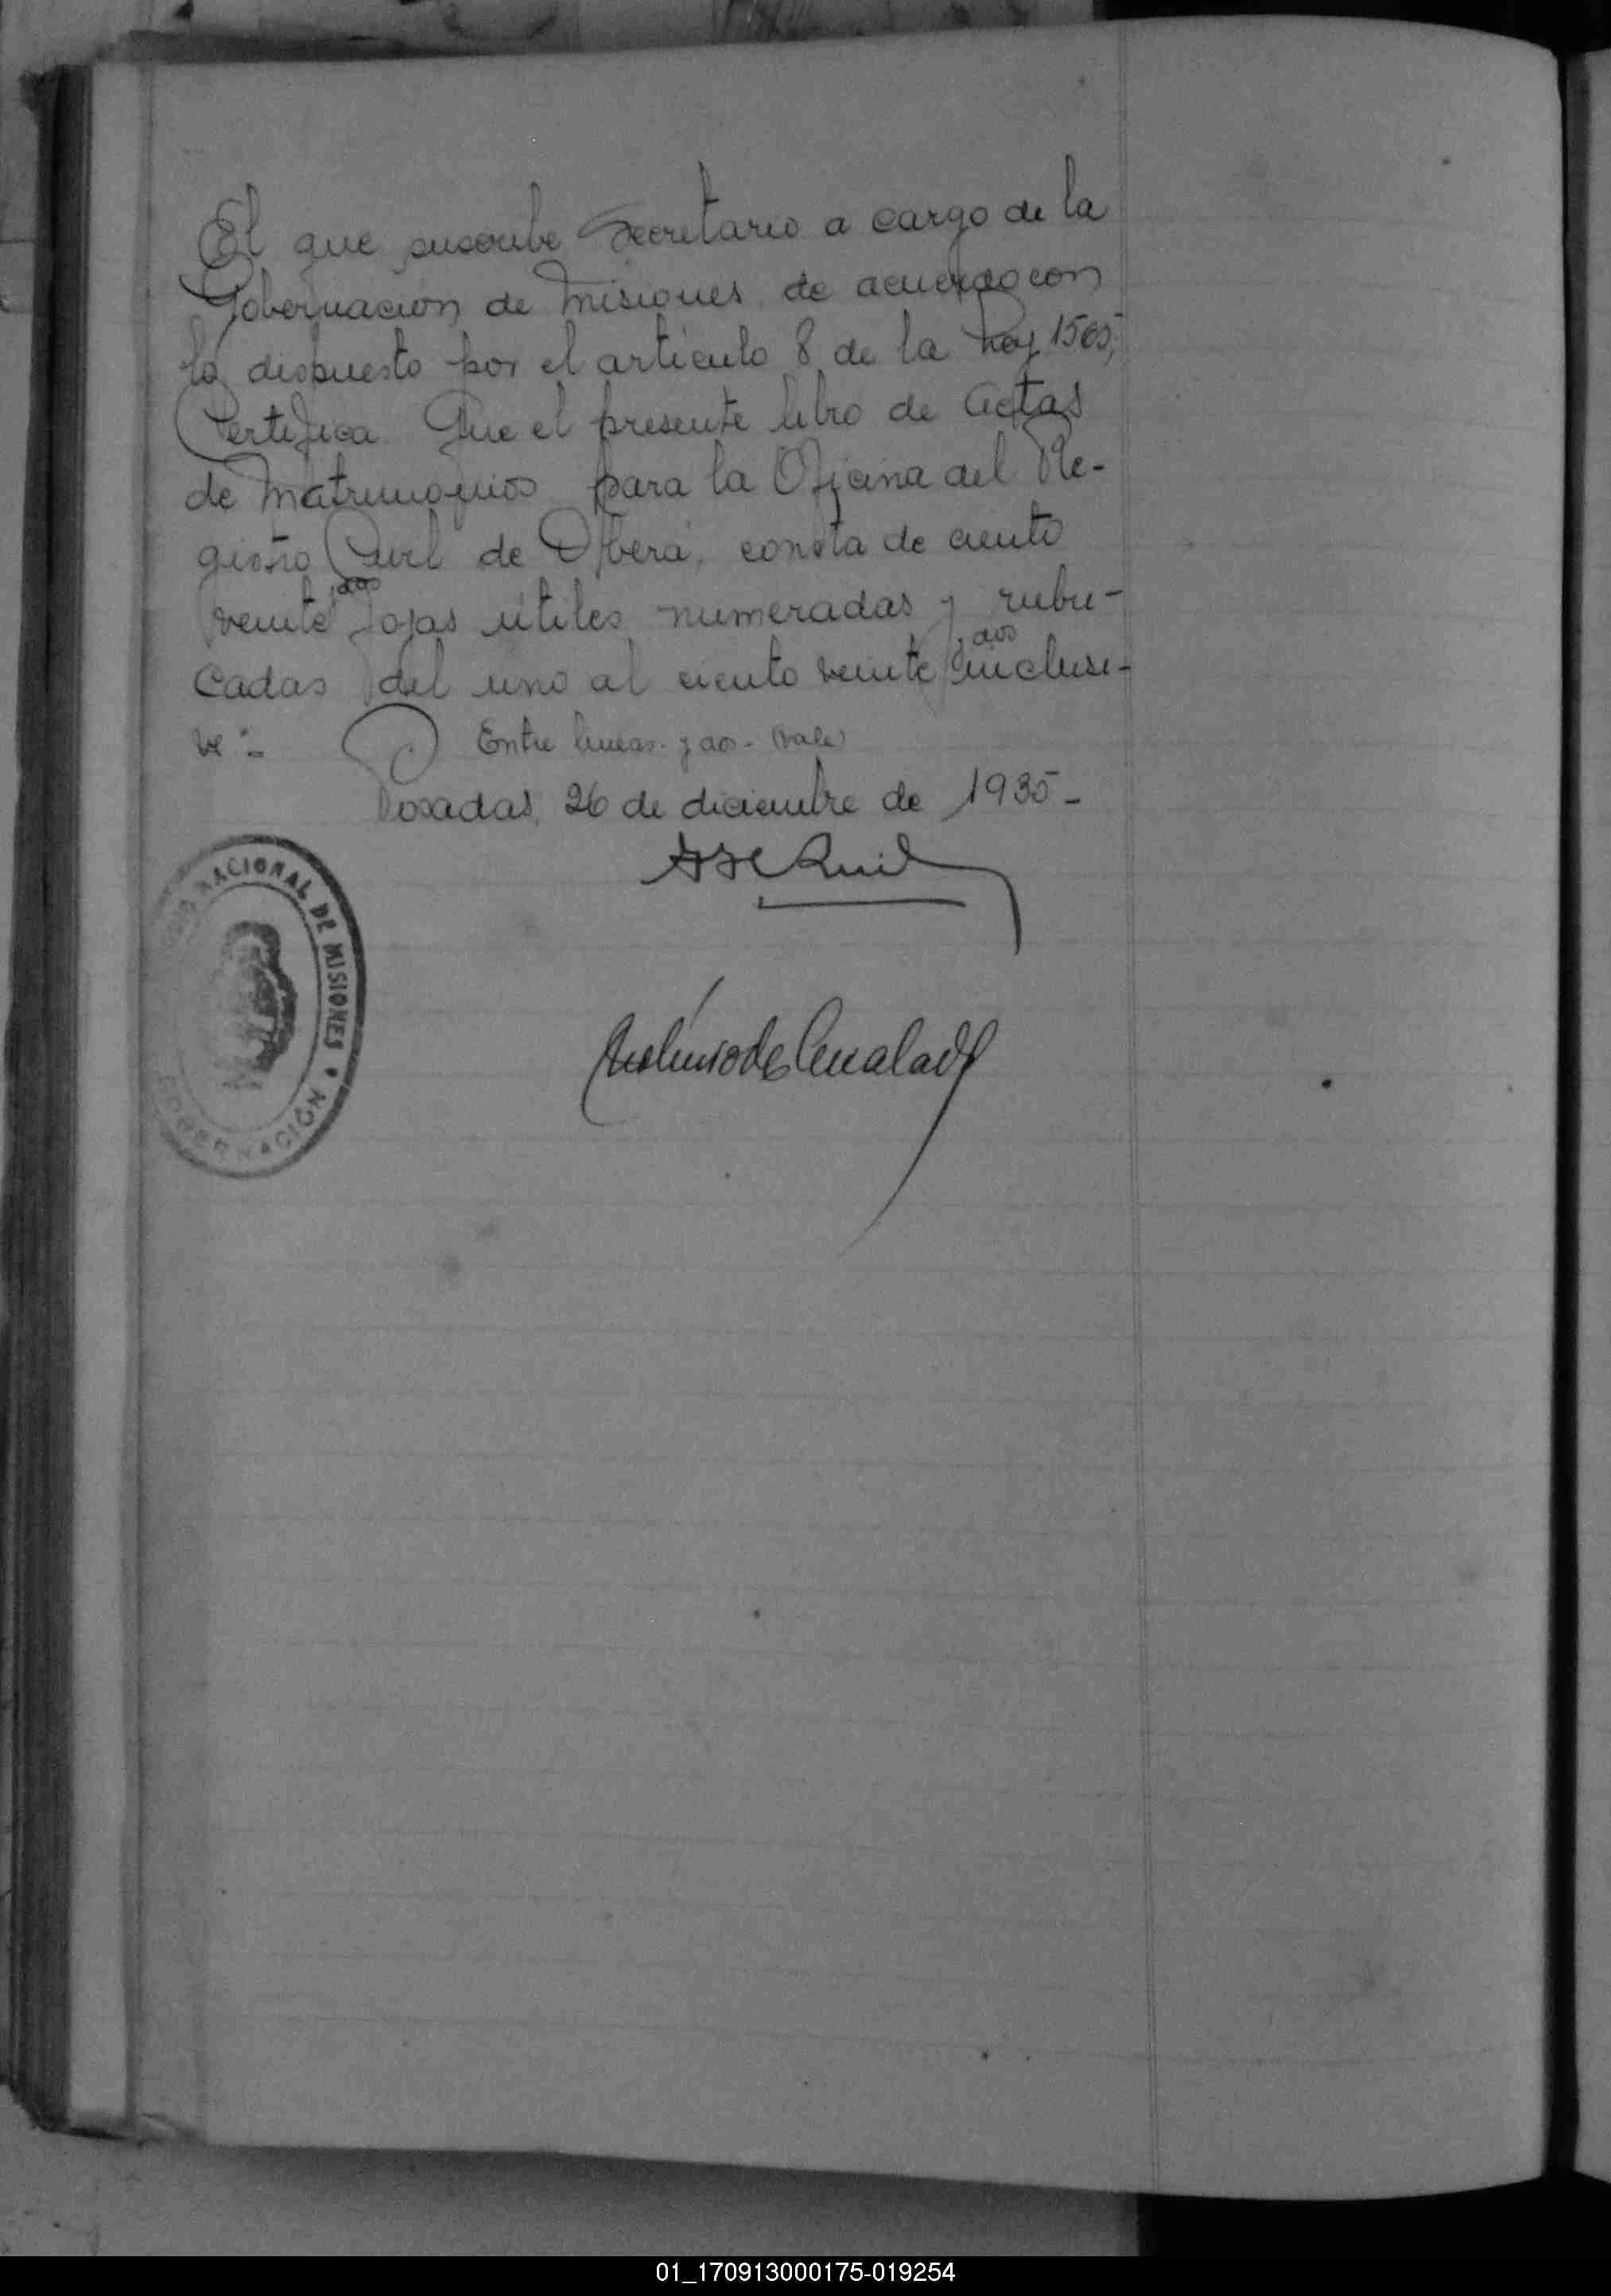 El que suscribe Secretario a cargo de la
Gobernación de Misiones, de acuerdo con
lo dispuesto por el artículo 8 de la Ley 1565,
Certifica Que el presente libro de Actas
de Matrimonios para la Oficina del Re-
gistro Civil de Oberá, consta de ciento
veinte y dos fojas útiles numeradas y rubri-
cadas del uno al ciento veinte y dos inclusi-
ve:-
Entre lineas - y dos - (vale)
Posadas, 26 de diciembre de 1935-
NACIONAL DE MISIONES
GOBERNACIÓN
01_170913000175-019254